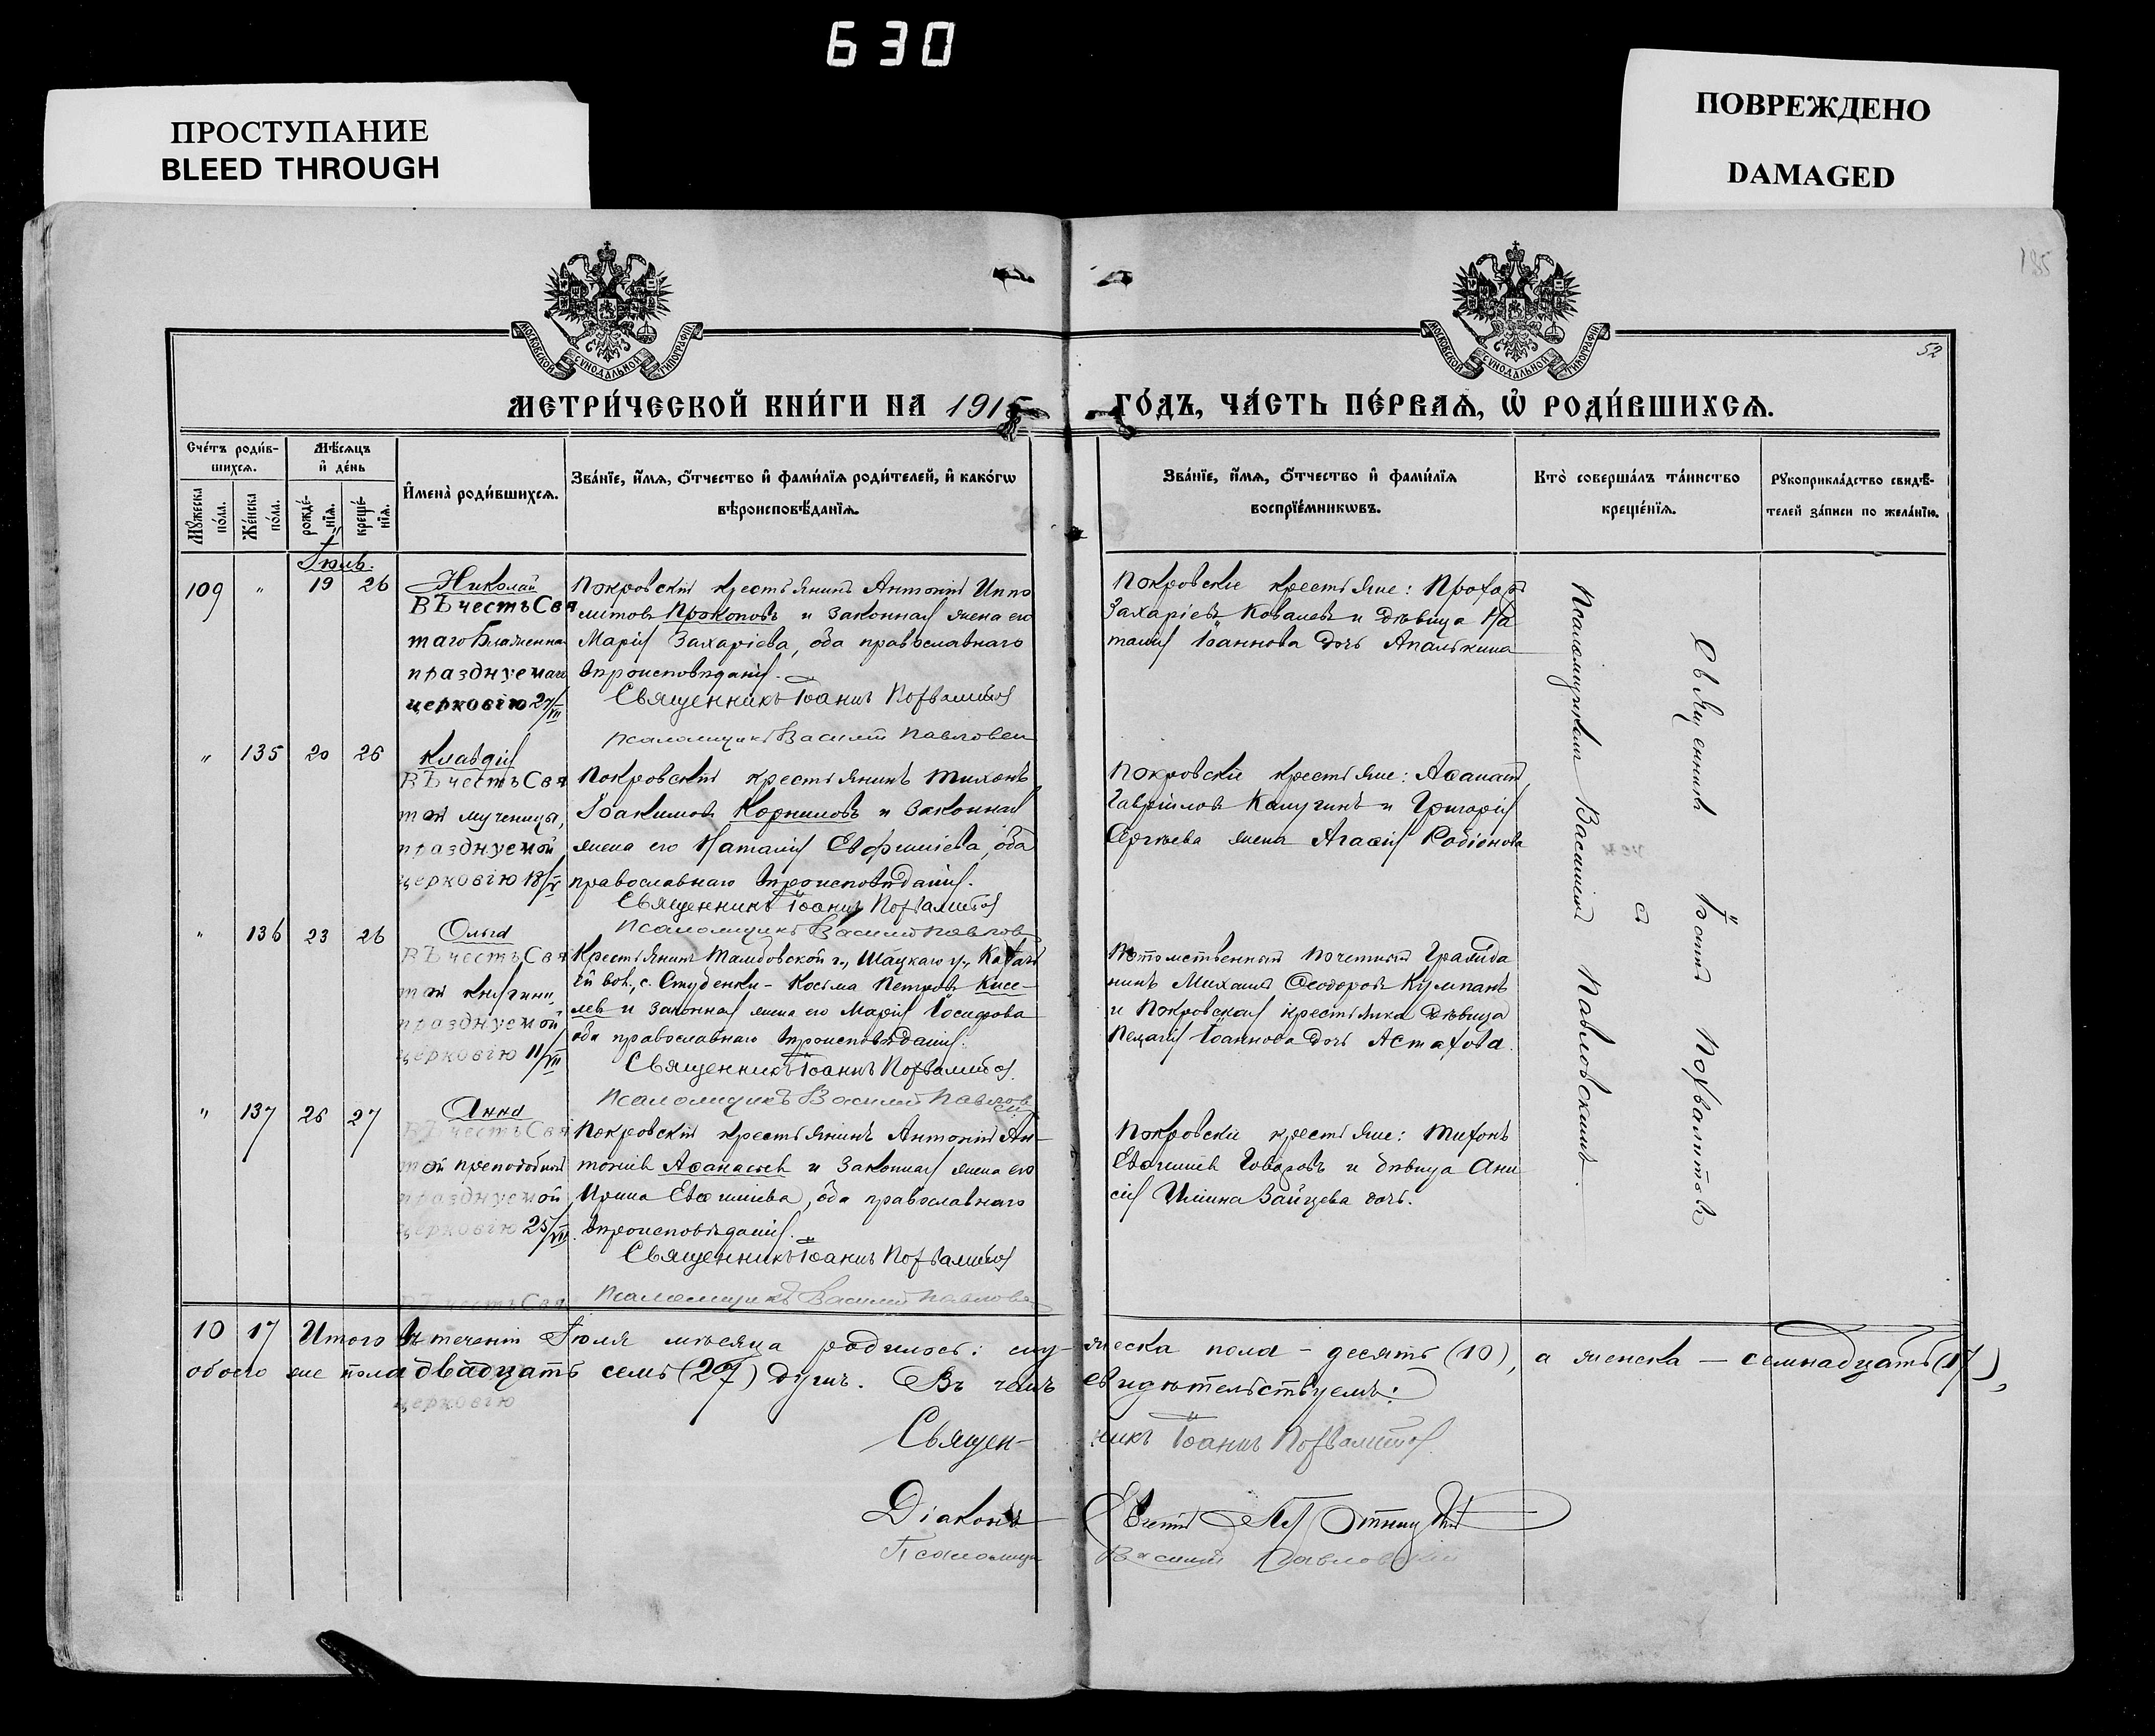 630
ПРОСТУПАНИЕ
BLEED THROUGH
ПОВРЕЖДЕНО
DAMAGED
185
52
МОСКОВСКОЙ СѴНОДАЛЬНОЙ ТИПОГРАФІИ
МОСКОВСКОЙ СѴНОДАЛЬНОЙ ТИПОГРАФІИ
МЕТРИ́ЧЕСКОЙ КНИ́ГИ НА 1915 ГО́ДЪ, ЧА́СТЬ ПЕ́РВАѦ, Ѡ҆ РОДИ́ВШИХСѦ.
Сче́тъ роди́в-
шихсѧ.
Мѣ́сѧцъ
и҆ де́нь
Мꙋ́жеска
по́ла.
Же́нска
по́ла.
рожде́-
нїѧ.
креще́-
нїѧ.
И҆мена̀ роди́вшихсѧ.
Зва́нїе, и҆́мѧ, ѻ҆́тчество и҆ фами́лїѧ роди́телей, и҆ како́гѡ
вѣроисповѣ́данїѧ.
Зва́нїе, и҆́мѧ, ѻ҆́тчество и҆ фами́лїѧ
воспрїе́мникѡвъ.
Кто̀ соверша́лъ та́инство
креще́нїѧ.
Рꙋкоприкла́дство свидѣ́-
телей за́писи по жела́нїю.
Іюль.
109 " 19 26 Николай
Въ честь Свя
таго Блаженна
празднуемаго
церковію 27/VII
Покровскій крестьянинъ Антоній Иппо
литовъ Прокоповъ и законная жена его
Марія Захаріева, оба православнаго
вѣроисповѣданія.
Священникъ Іоаннъ Похвалитовъ
Псаломщикъ Василій Павловск
Покровскіе крестьяне: Прохоръ
Захаріевъ Ковалевъ и дѣвица На
талія Іоаннова дочь Апалькина
" 135 20 26 Клавдія
Въ честь Свя
той мученицы,
празднуемой
церковію 18/V
Покровскій крестьянинъ Тихонъ
Іоакимовъ Корниловъ и законная
жена его Наталія Евфиміева, оба
православнаго вѣроисповѣданія.
Священникъ Іоаннъ Похвалитовъ
Псаломщикъ Василій Павлов
Покровскіе крестьяне: Аѳанасій
Гавріиловъ Калугинъ и Григорія
Сергѣева жена Агаѳія Родіонова
" 136 23 26 Ольга
Въ честь Свя
той княгини,
празднуемой
церковію 11/VII
Крестьянинъ Тамбовской г., Шацкаго у.,
вол., с. Студенки - Косьма Петровъ Кисе-
левъ и законная жена его Марія Іосифова
оба православнаго вѣроисповѣданія.
Священникъ Іоаннъ Похвалитовъ.
Псаломщикъ Василій Павлов
скій
Потомственный почетный гражда
нинъ Михаилъ Ѳеодоровъ Кумпанъ
и Покровская крестьянка дѣвица
Пелагія Іоаннова дочь Астахова.
" 137 26 27 Анна
Въ честь Свя
той преподобной
празднуемой
церковію 25/VII.
Покровскій крестьянинъ Антоній Ан-
тоніевъ Аѳанасьевъ и законная жена его
Ирина Евѳиміева, оба православнаго
вѣроисповѣданія.
Священникъ Іоаннъ Похвалитовъ
Псаломщикъ Василій Павлов
Покровскіе крестьяне: Тихонъ
Евѳиміевъ Говоровъ и дѣвица Ани
сія Ильина Зайцева дочь.
Священникъ Іоаннъ Похвалитовъ
съ
Псаломщикомъ Василіемъ Павловскимъ.
Въ честь Свя
10 17 Итого въ теченіи Іюля мѣсяца родилось: му-жеска пола - десять (10), а женска — семнадцать (17),
обоего же пола двадцать семь (27) душъ. Въ чемъ свидѣтельствуемъ:
церковію
Священ-никъ Іоаннъ Похвалитовъ.
Діаконъ
Псаломщи Василій Павловскій